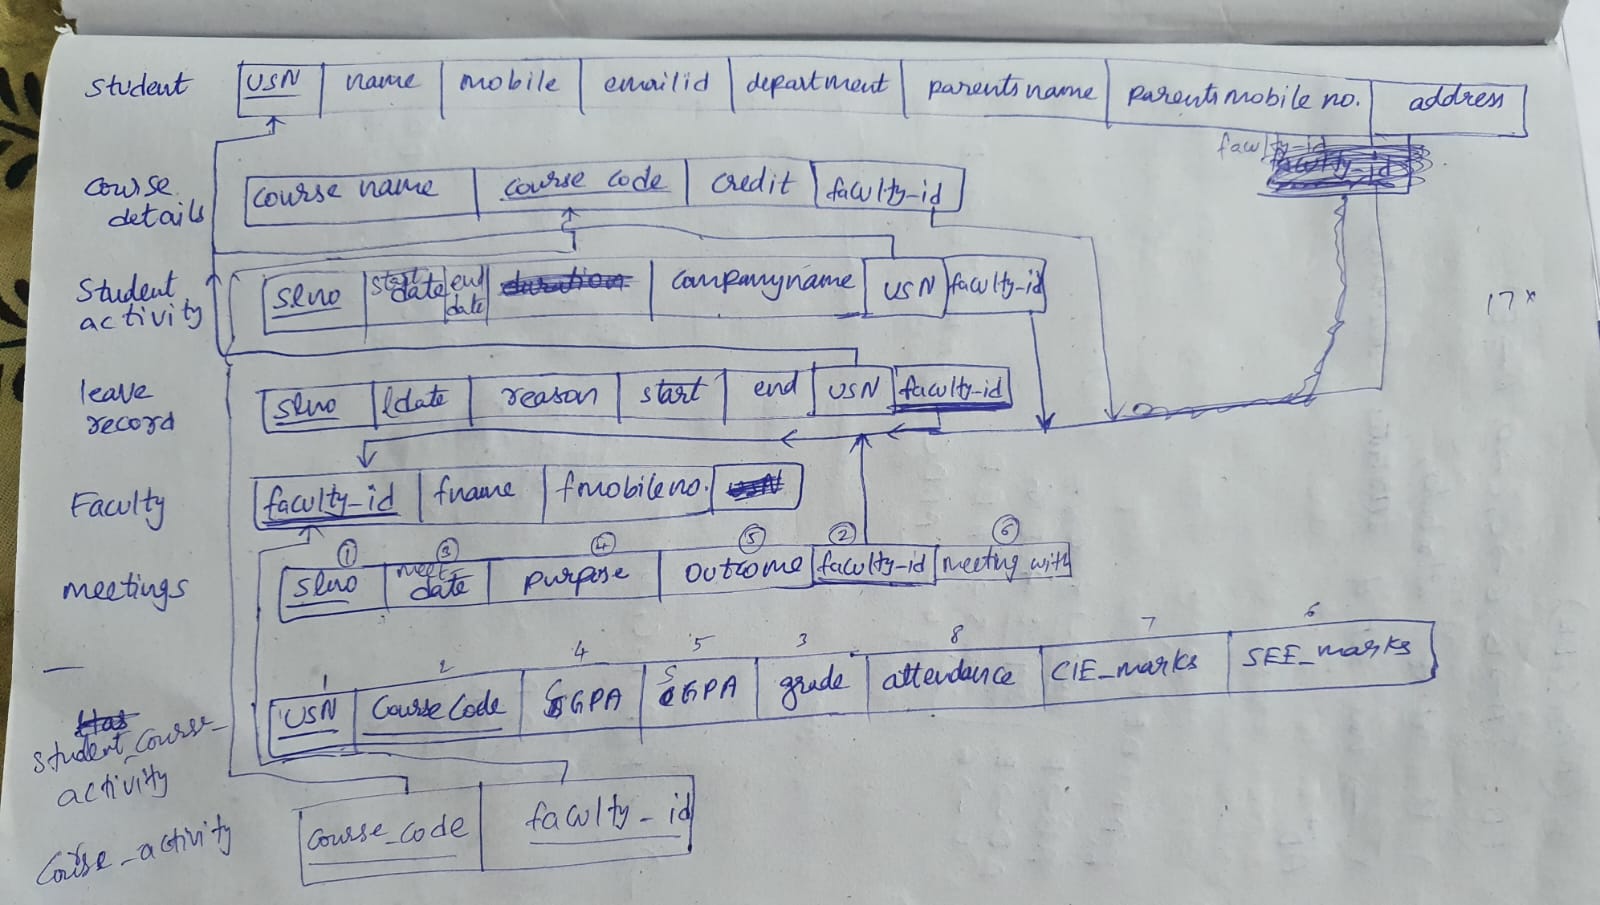 Student USN name mobile emailid department parentsname parentsmobile no. address
faculty-id
faculty-id
course details course name course code credit faculty-id
Student activity slno start date end date duration companyname USN faculty-id
17 x
leave record slno ldate reason start end USN faculty-id
Faculty faculty-id fname fmobileno. USN
1 3 4 5 2 6
meetings slno meet-date purpose outcome faculty-id meeting with
1 2 4 5 3 8 7 6
Has
student_course_activity USN Course Code GPA GPA grade attendance CIE_marks SEE_marks
Course_activity course_code faculty_id